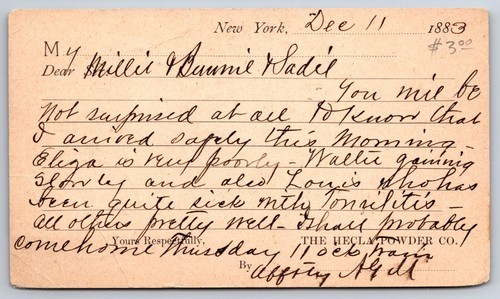 New York, Dec 11 1883
$3.00
My
Dear Millie & Bunnie & Sadie
You will be
not surprised at all to know that
I arrived safely this Morning -
Eliza is very poorly - Wallie gaining
Slowly and also Louis who has
been quite sick with Tonsilitis -
all others pretty well - I shall probably
come home Thursday 11 ock train
Yours Respectfully, THE HECLA POWDER CO.
By Affcty